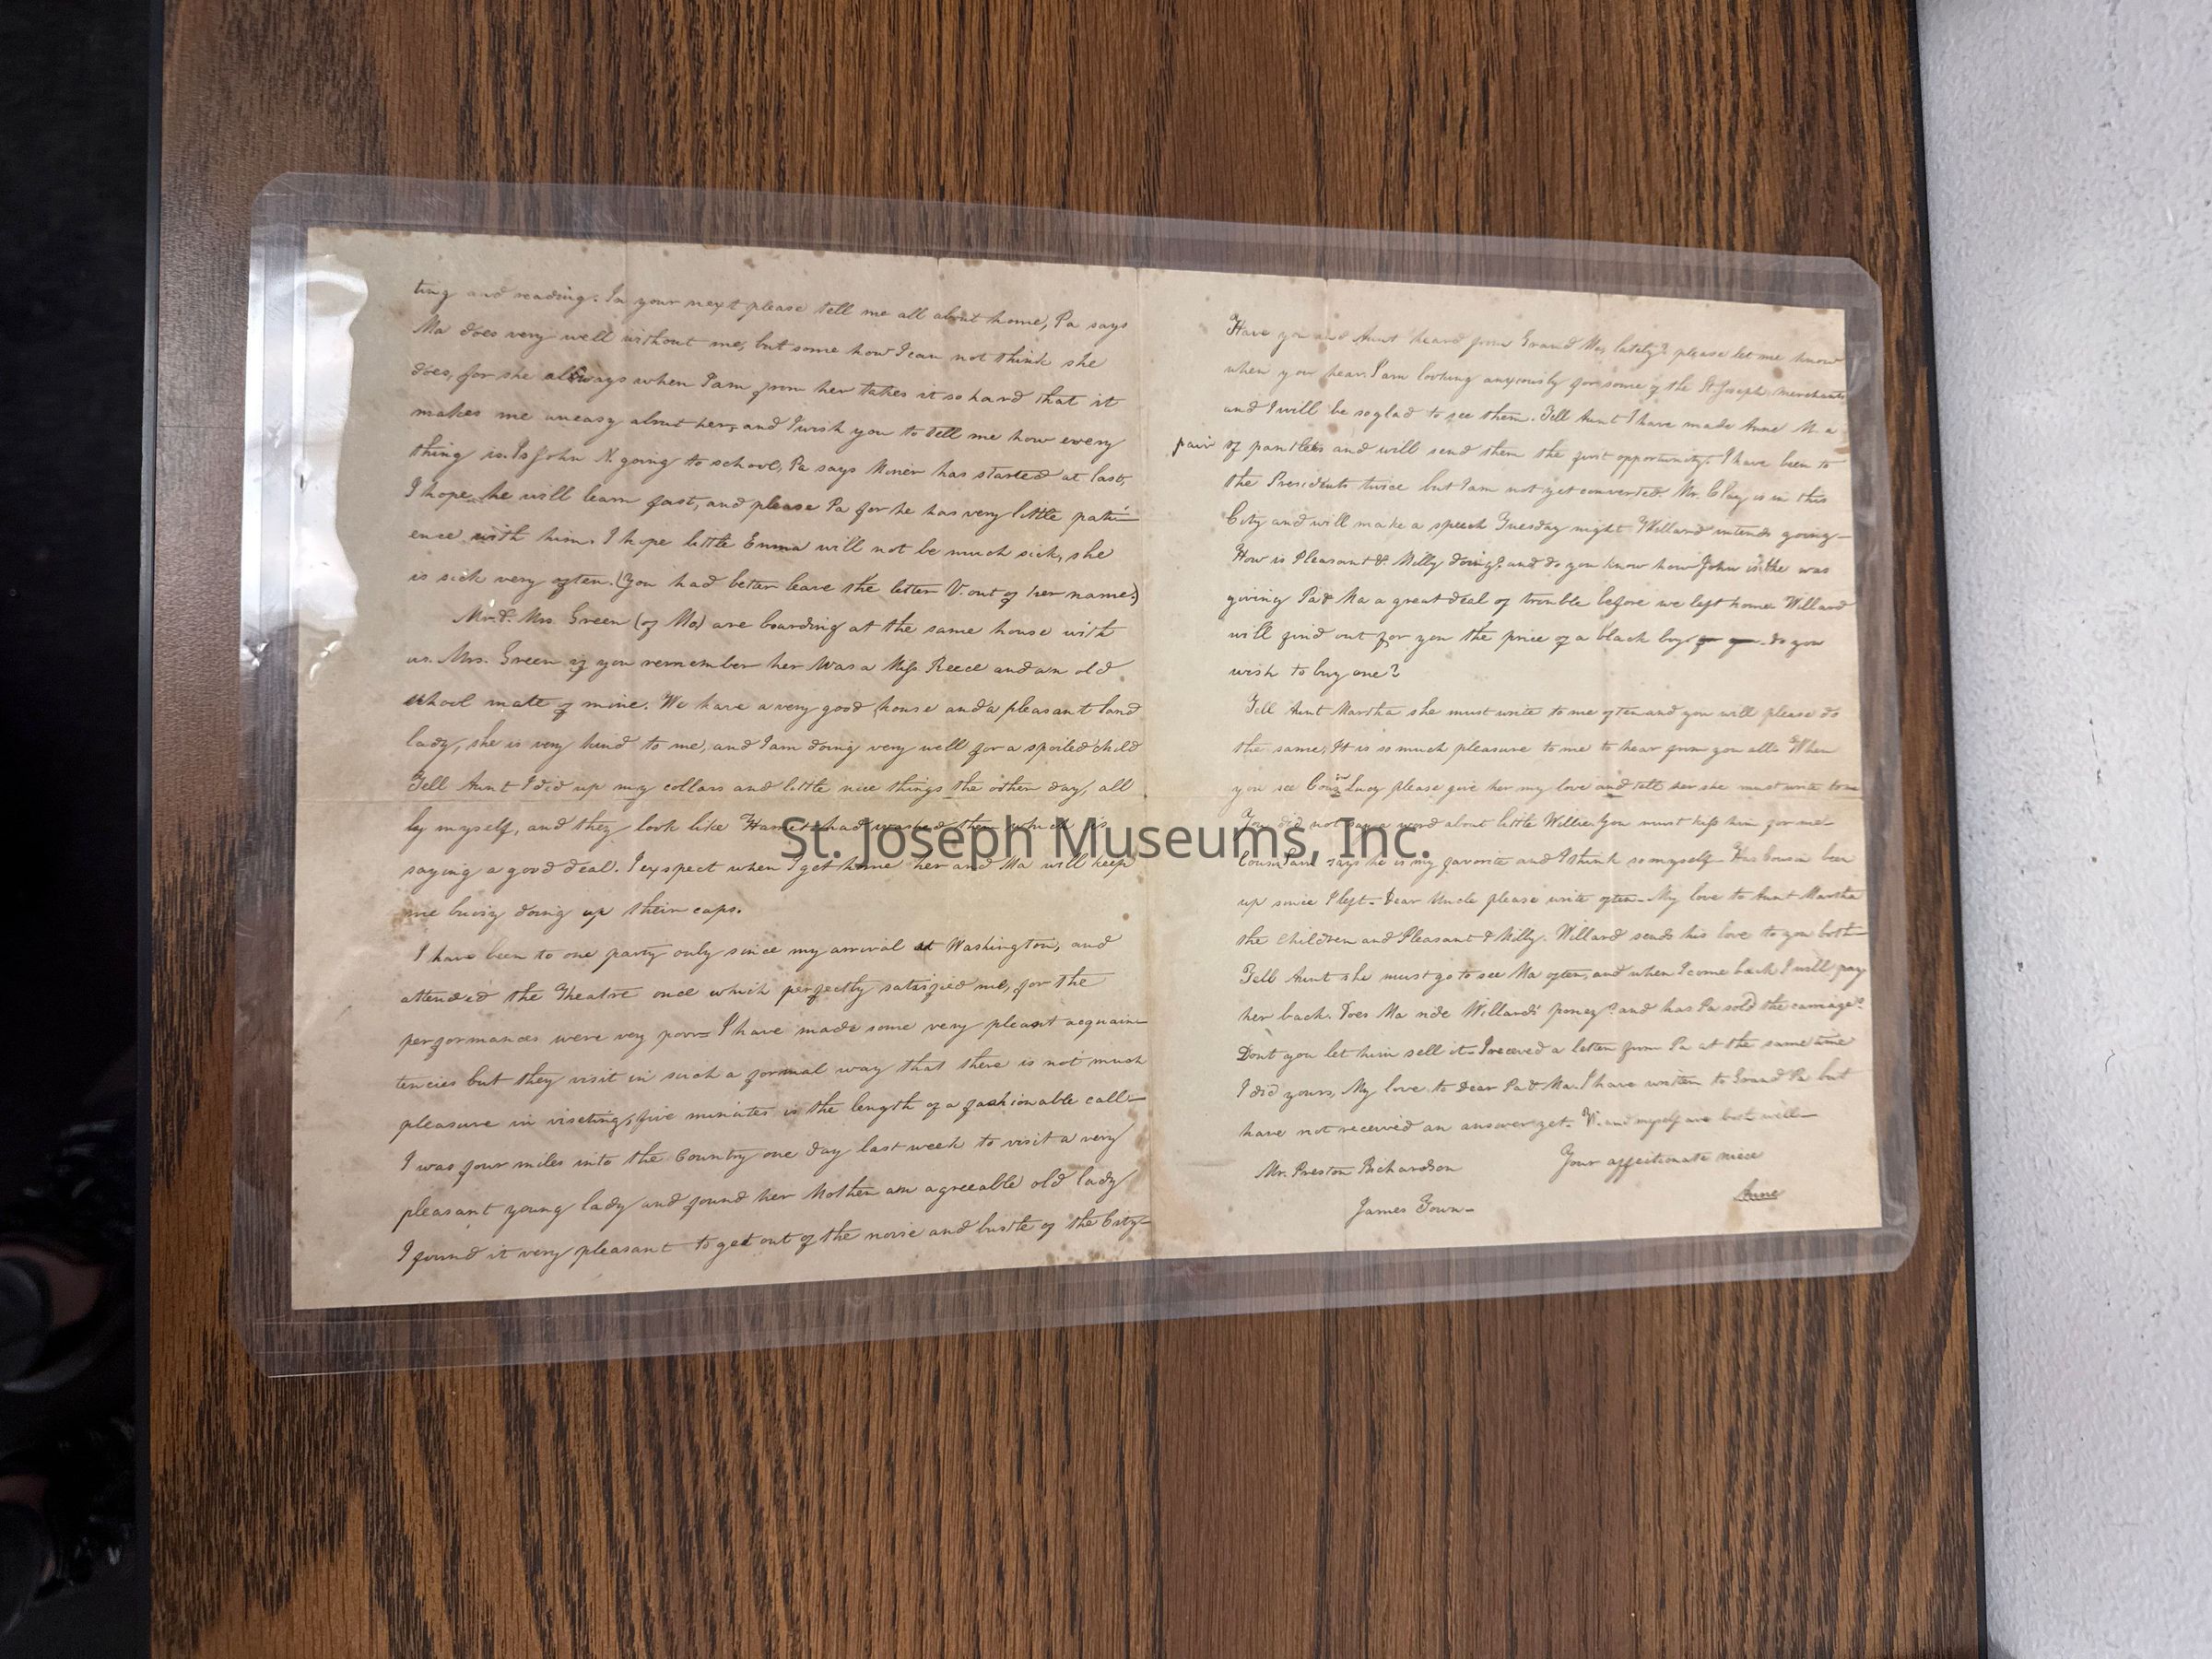 ting and reading. In your next please tell me all about home, Pa says
Ma does very well without me, but some how I can not think she
does, for she allways when I am from her takes it so hard that it
makes me uneasy about her, and I wish you to tell me how every
thing is. Is John N. going to school, Pa says Niner has started at last,
I hope he will learn fast, and please Pa for he has very little pati-
ence with him. I hope little Emma will not be much sick, she
is sick very often. (You had better leave the letter V. out of her name.)
Mr. & Mrs. Green (of Mo) are boarding at the same house with
us. Mrs. Green if you remember her was a Miss Reece and an old
school mate of mine. We have a very good house and a pleasant land
lady, she is very kind to me, and I am doing very well for a spoiled child
Tell Aunt I did up my collars and little nice things the other day, all
by myself, and they look like Harriet had washed them which is
saying a good deal. I exspect when I get home her and Ma will keep
me buisy doing up their caps.
I have been to one party only since my arrival at Washington, and
attended the Theatre once which perfectly satisfied me, for the
performances were very poor- I have made some very pleasant acquain-
tencies but they visit in such a formal way that there is not much
pleasure in viseting, five miniutes is the length of a fashionable call-
I was four miles into the Country one day last week to visit a very
pleasant young lady and found her Mother an agreeable old lady
I found it very pleasant to get out of the noise and bustle of the City-
Have you and Aunt heard from Grand Ma, lately? please let me know
when you hear. I am looking anxiously for some of the St. Joseph merchants
and I will be so glad to see them. Tell Aunt I have made Anne M. a
pair of pantlets and will send them the first opportunity. I have been to
the Presidents twice but I am not yet converted. Mr. Clay is in this
City and will make a speech Tuesday night Willard intends going-
How is Pleasant & Milly doing? and do you know how John is? he was
giving Pa & Ma a great deal of trouble before we left home Willard
will find out for you the price of a black boy - do you
wish to buy one?
Tell Aunt Marstha she must write to me often and you will please do
the same, It is so much pleasure to me to hear from you all- When
you see Cousin Lucy please give her my love and tell her she must write to me
You did not say a word about little Willie. You must kiss him for me-
Cousin says he is my favorite and I think so myself- Has Cousin been
up since I left- Dear Uncle please write often- My love to Aunt Marstha
the Children and Pleasant & Milly. Willard sends his love to you both-
Tell Aunt she must go to see Ma often, and when I come back I will pay
her back. Does Ma ride Willards' poney? and has Pa sold the carriage?
Dont you let him sell it- I receved a letter from Pa at the same time
I did yours, My love to Dear Pa & Ma. I have written to Grand Pa but
have not received an answer yet. W. and myself are both well-
Your affectionate niece
Anne
Mr. Preston Richardson
James Town-
St. Joseph Museums, Inc.